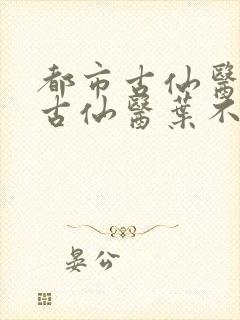 都市古仙醫
古仙醫葉不
晏公